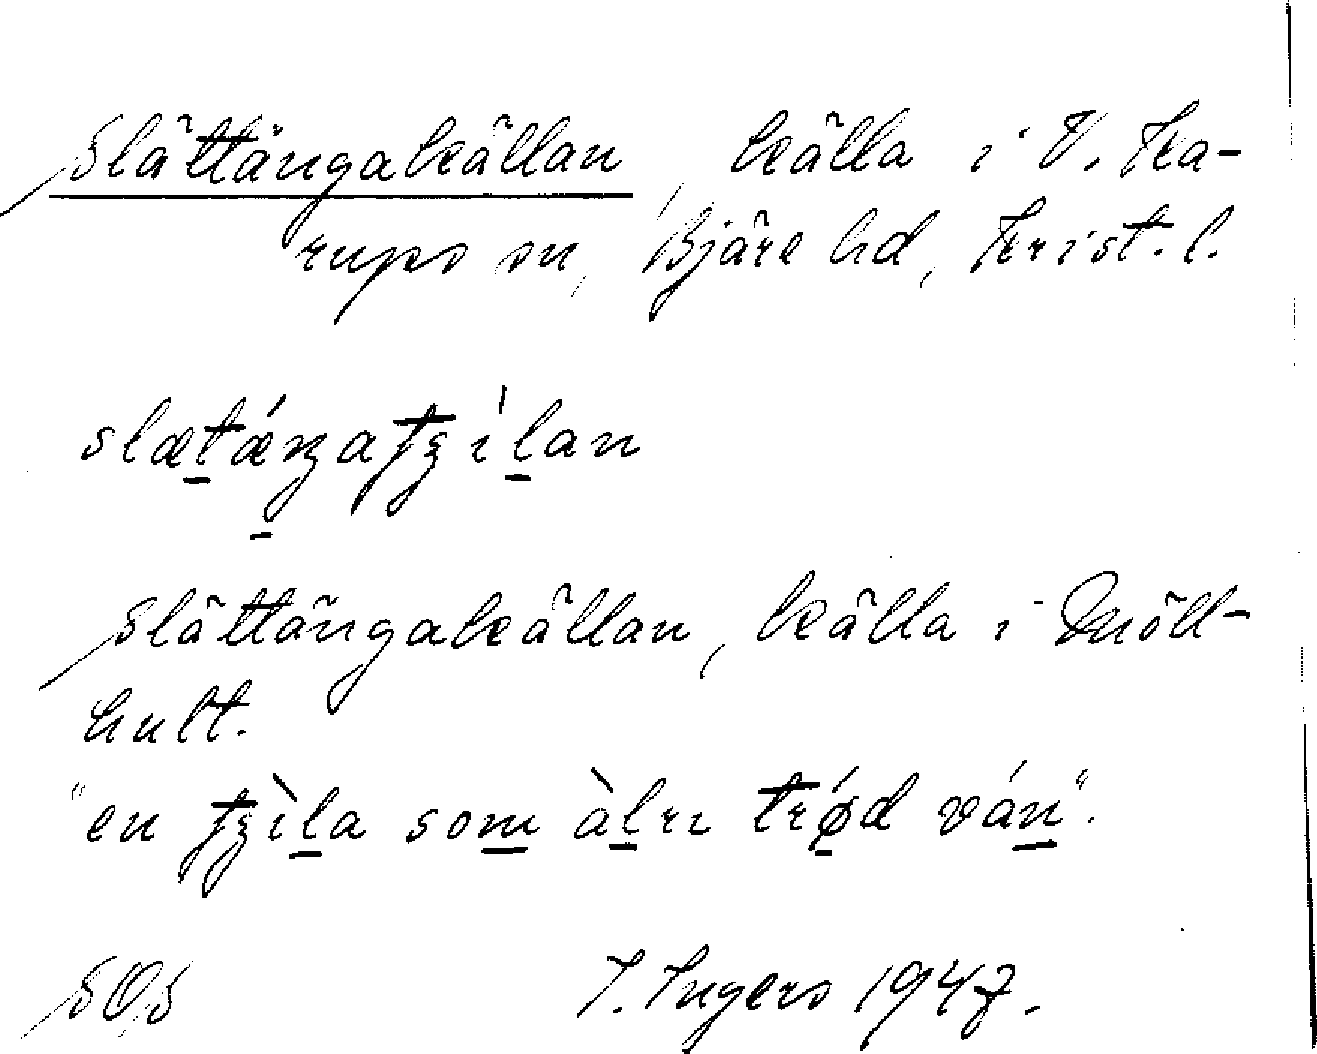 Slättängakällan, källa i V. Ka-
rups sn, Bjäre hd, Krist. l.
slætǽŋaʈʂìlan
Slättängakällan, källa i Möll-
hult.
"en ʈʂìla som àlri trǿd ván".
SOS I. Ingers 1947.